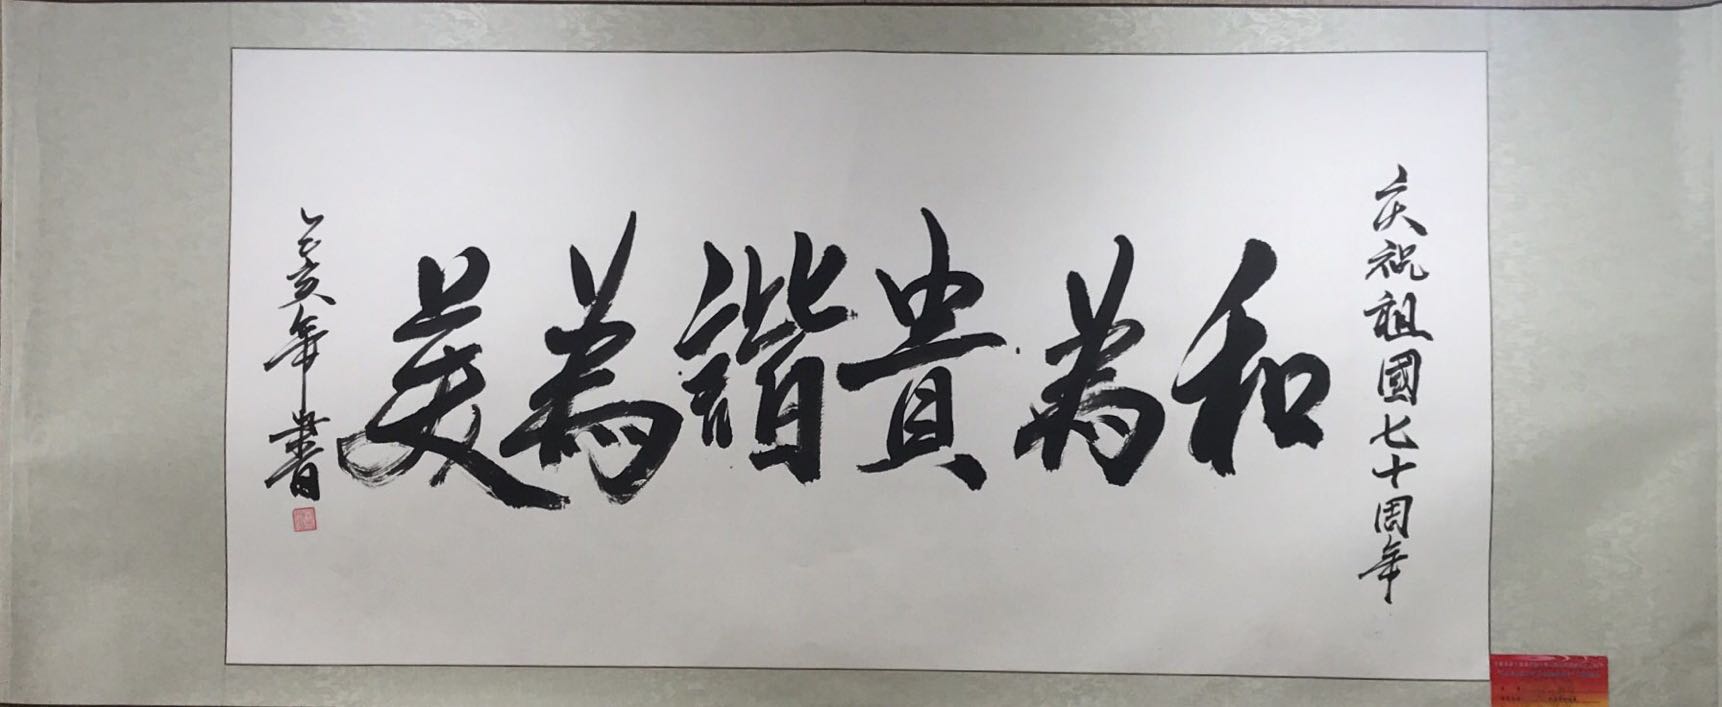 庆祝祖國七十周年
和為貴諧為美
己亥年書